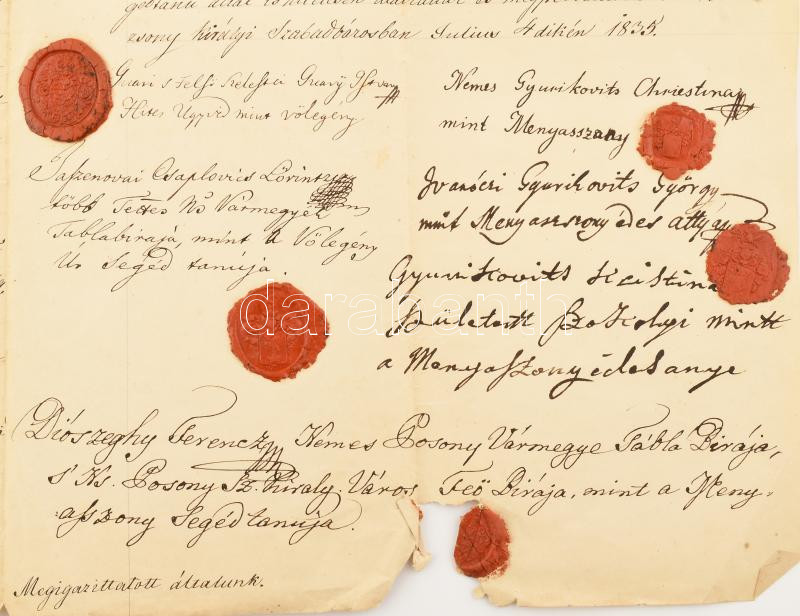 zsony királyi Szabadvárosban Julius 4dikén 1835.
Guari s Felsö Szelestei Guary István
Hites Ügyvéd mint völegény
Nemes Gyurikovits Chriestina
mint Menyasszany
Jaszenovai Csaplovics Lörintz
több Tettes Ns Vármegyék
Táblabirája, mint a Völegény
Ur Segéd tanúja.
Ivanóczi Gyurikovits György
mint Menyaszszony édes attyja
Gyurikovits Kristina
született Szokolyi mintt
a Menyasszony édes anye
Diószeghy Ferencz, Nemes Posony Vármegye Tábla Birája,
s' Ks. Posony Sz. Király. Város Feö Birája, mint a Meny-
-asszony Segéd tanúja.
Megigazíttatott általunk.
darabanth